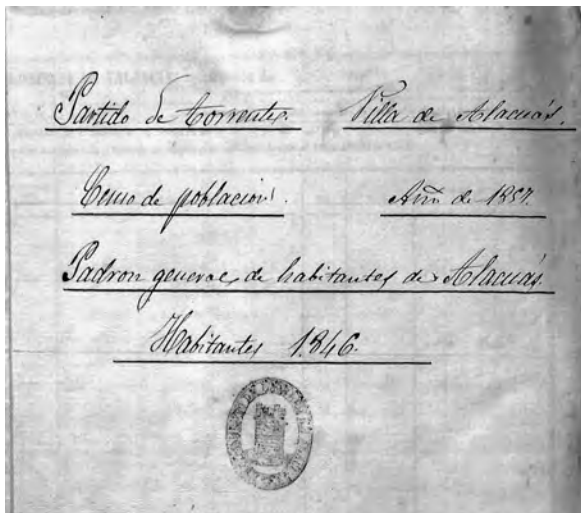 Partido de Torrente. Villa de Alacuás.
Censo de poblacion. Año de 1857.
Padron general de habitantes de Alacuás.
Habitantes 1.846.